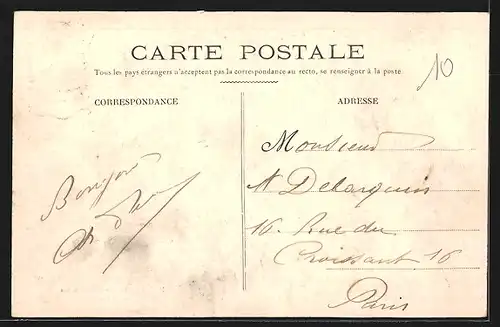 CARTE POSTALE
Tous les pays étrangers n'acceptent pas la correspondance au recto, se renseigner à la poste
10
CORRESPONDANCE
ADRESSE
Monsieur
Bonjour
16. Rue du
Croissant 16
Paris